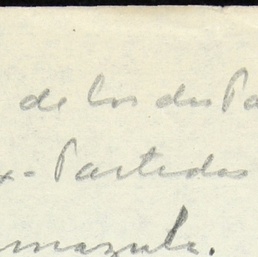 de los dos Pa
x-Partidos
mazula.